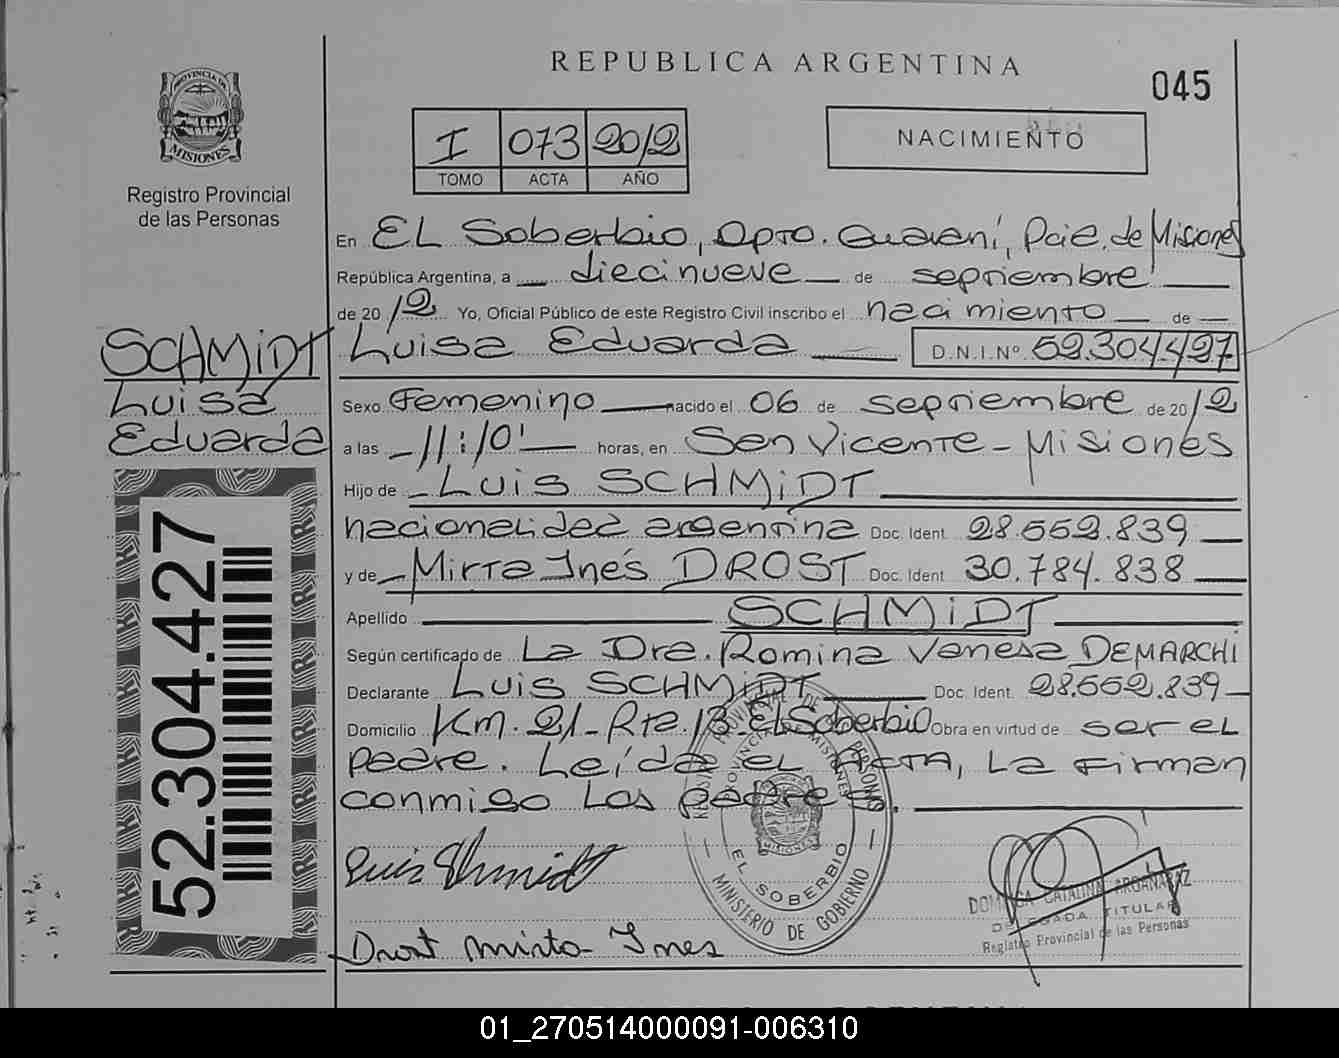 REPUBLICA ARGENTINA
045
PROVINCIA DE
MISIONES
Registro Provincial
de las Personas
I 073 2012
TOMO ACTA AÑO
NACIMIENTO
En EL Soberbio, Dpto. Guaraní, Pcia. de Misiones
República Argentina, a diecinueve de septiembre
de 2012 Yo, Oficial Público de este Registro Civil inscribo el nacimiento de
Luisa Eduarda D.N.I.Nº 52.304.427
SCHMiDT
Luisa
Eduarda
Sexo Femenino nacido el 06 de septiembre de 2012
a las 11:10' horas, en San Vicente - Misiones
Hijo de Luis SCHMiDT
nacionalidad argentina Doc. Ident. 28.552.839
y de Mirta Inés DROST Doc. Ident. 30.784.838
Apellido SCHMiDT
Según certificado de La Dra. Romina Vanesa DEMARCHI
Declarante Luis SCHMiDT Doc. Ident. 28.552.839
Domicilio Km. 21 - Rta. 13. El Soberbio Obra en virtud de ser el
padre. Leída el ACTA, La firman
conmigo Los padres.
52.304.427
Luis Schmidt
Drost Mirta Ines
PROVINCIA DE MISIONES
EL SOBERBIO
MINISTERIO DE GOBIERNO
CATALINA
TITULAR
Registro Provincial de las Personas
01_270514000091-006310